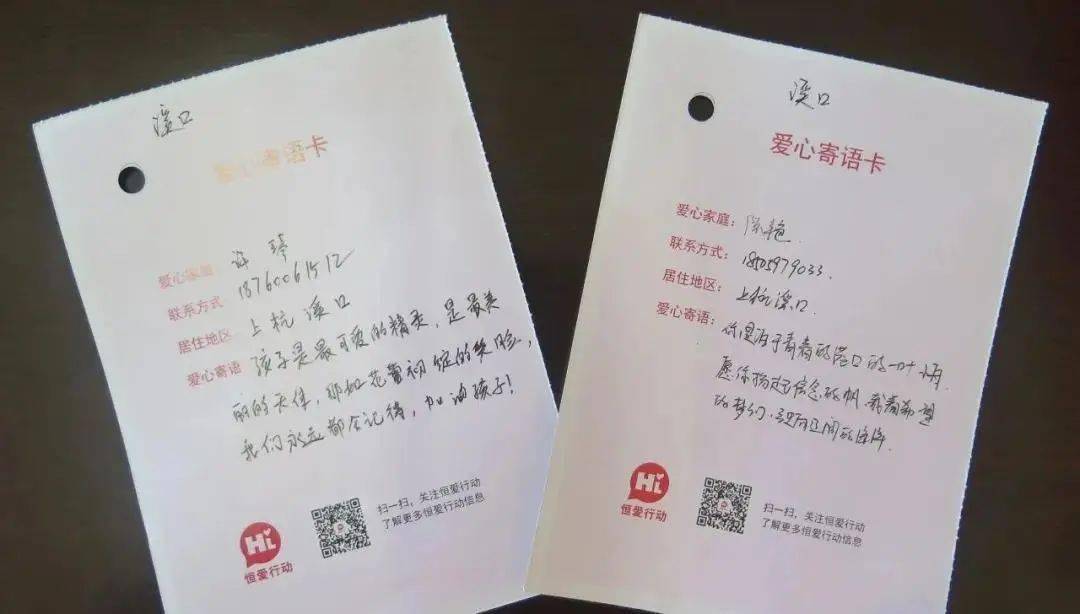 溪口
爱心寄语卡
爱心家庭 许琴
联系方式 18760061512
居住地区 上杭溪口
爱心寄语 孩子是最可爱的精灵，是最美
丽的天使，那如花蕾初绽的笑脸，
我们永远都会记得，加油孩子！
Hi
恒爱行动
扫一扫，关注恒爱行动
了解更多恒爱行动信息
溪口
爱心寄语卡
爱心家庭：陈艳
联系方式：18505979033.
居住地区：上杭溪口.
爱心寄语：你是泊于青春的港口的一叶小舟.
愿你扬起信念的帆，载着希望
的梦幻，驶向辽阔的海洋.
Hi
恒爱行动
扫一扫，关注恒爱行动
了解更多恒爱行动信息